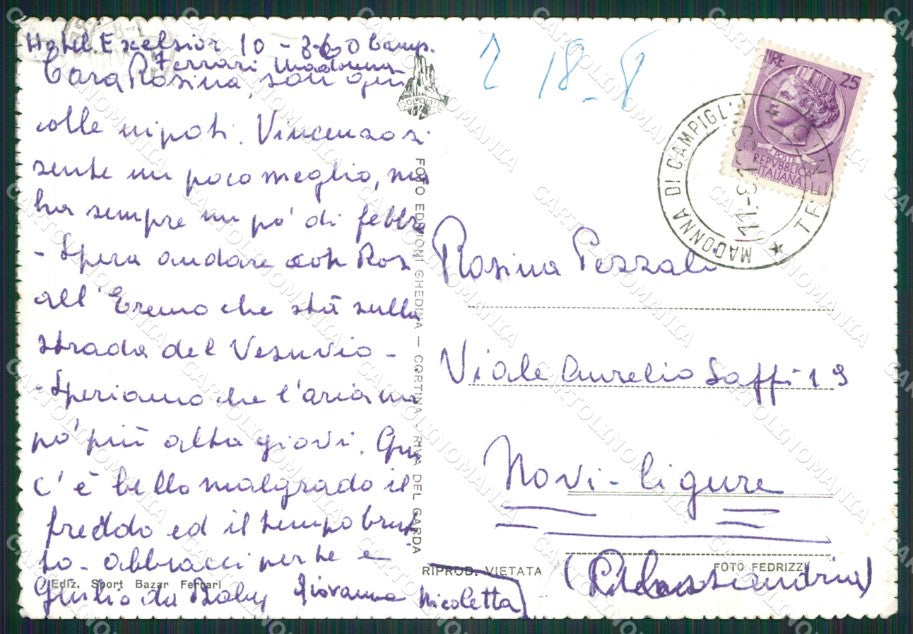 Hotel Excelsior 10-8-60 Camp.
Ferrari Madonna
Cara Rosina, son qui
colle nipoti. Vincenzo si
sente un poco meglio, ma
ha sempre un po' di febbre
- Spera andare con Ros
all'Eremo che sta sulla
strada del Vesuvio -
- Speriamo che l'aria un
po' più alta giovi. Qui
c'è bello malgrado il
freddo ed il tempo brut
to - abbracci per te e
Giulio da Baby Giovanna Nicoletta
Ediz. Sport Bazar Ferrari
FOTO EDIZIONI GHEDINA - CORTINA - RIVA DEL GARDA
RIPROD. VIETATA
FOTO FEDRIZZI
2 18-8
LIRE 25
POSTE
REPVBBLICA
ITALIANA
MADONNA DI CAMPIGLIO
TRENTO
11-8
Rosina Pezzali
Viale Aurelio Saffi 19
Novi-Ligure
(Alessandria)
CARTOLINOMANIA